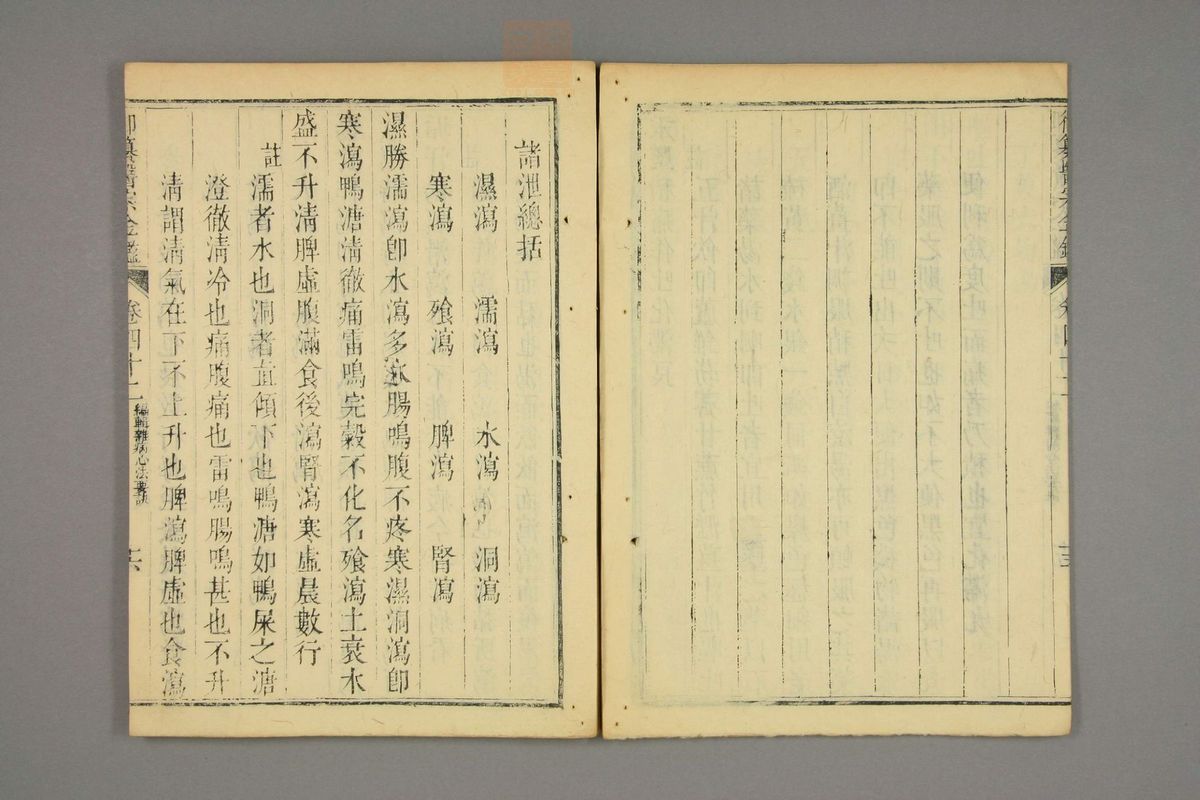 御纂醫宗金鑑
卷四十
諸泄總括
濕瀉　濡瀉　水瀉　洞瀉
寒瀉　飱瀉　脾瀉　腎瀉
濕勝濡瀉卽水瀉多水腸鳴腹不疼寒濕洞瀉卽
寒瀉鴨溏淸徹痛雷鳴完穀不化名飱瀉土衰木
盛不升淸脾虛腹滿食後瀉腎瀉寒虛晨數行
註濡者水也洞者直傾下也鴨溏如鴨屎之溏
澄徹淸冷也痛腹痛也雷鳴腸鳴甚也不升
淸謂淸氣在下不上升也脾瀉脾虛也食瀉
御纂醫宗金鑑　卷四十　編輯雜病心法要訣